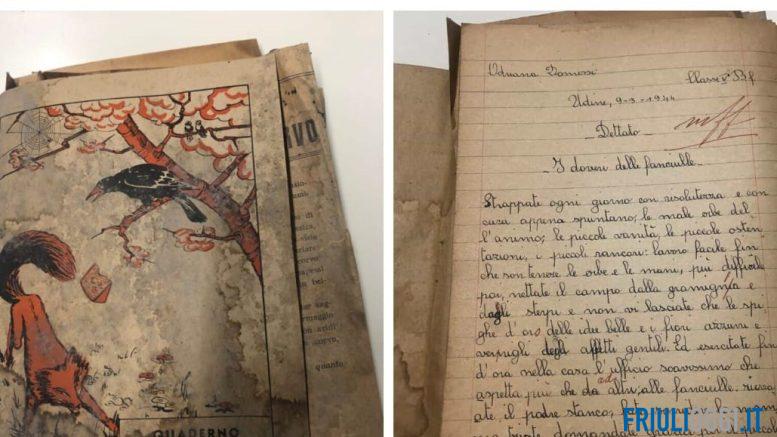 QUADERNO
quanto
Classe
Udine, 9-3-1944
- Dettato -
- I doveri delle fanciulle -
Strappate ogni giorno con risolutezza e con
cura appena spuntano, le male erbe del
l'animo; le piccole vanità, le piccole osten
tazioni, i piccoli rancori: lavoro facile fin
che son tenere le erbe e le mani, più difficile
poi, nettate il campo dalla gramignia e
dagli sterpi e non vi lasciate che le spi
ghe d'oro delle idee belle e i fiori azzurri e
vermigli degli affetti gentili. Ed esercitate fin
d'ora nella casa l'ufficio soavissimo che
aspetta più che ad altri, alle fanciulle.
ate, il padre stanco,
domandate
FRIULI IT